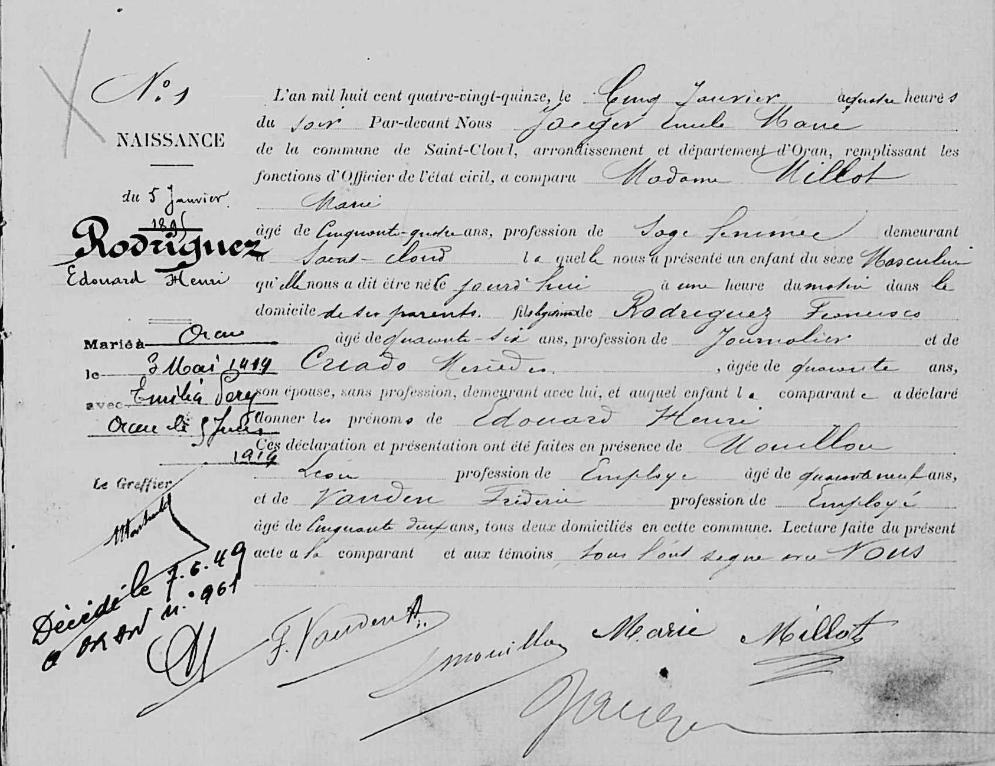 N.° 1
NAISSANCE
du 5 Janvier
1895
Rodriguez
Edouard Henri
Marié à Oran
le 3 Mai 1919
avec Emilia
Oran le 5
1919
Le Greffier
Décédé le 7.6.49
a ORAN n.° 961
L'an mil huit cent quatre-vingt-quinze, le Cinq Janvier à quatre heures
du soir Par-devant Nous Jaeger Emile Marie
de la commune de Saint-Cloud, arrondissement et département d'Oran, remplissant les
fonctions d'Officier de l'état civil, a comparu Madame Millot
Marie
âgé de Cinquante-quatre ans, profession de Sage femme demeurant
à Saint-Cloud laquelle nous a présenté un enfant du sexe Masculin
qu'elle nous a dit être né ce jourd'hui à une heure du matin dans le
domicile de ses parents. fils légitime de Rodriguez Francisco
âgé de quarante-six ans, profession de Journalier et de
Criado Mercedes, âgée de quarante ans,
son épouse, sans profession, demeurant avec lui, et auquel enfant la comparante a déclaré
donner les prénoms de Edouard Henri
Ces déclaration et présentation ont été faites en présence de Mouillon
Léon profession de Employé âgé de quarante neuf ans,
et de Vanden Frédéric profession de Employé
âgé de Cinquante deux ans, tous deux domiciliés en cette commune. Lecture faite du présent
acte a la comparant et aux témoins, tous l'ont signé avec Nous
F. Vanden
Mouillon
Marie Millot
Jaeger